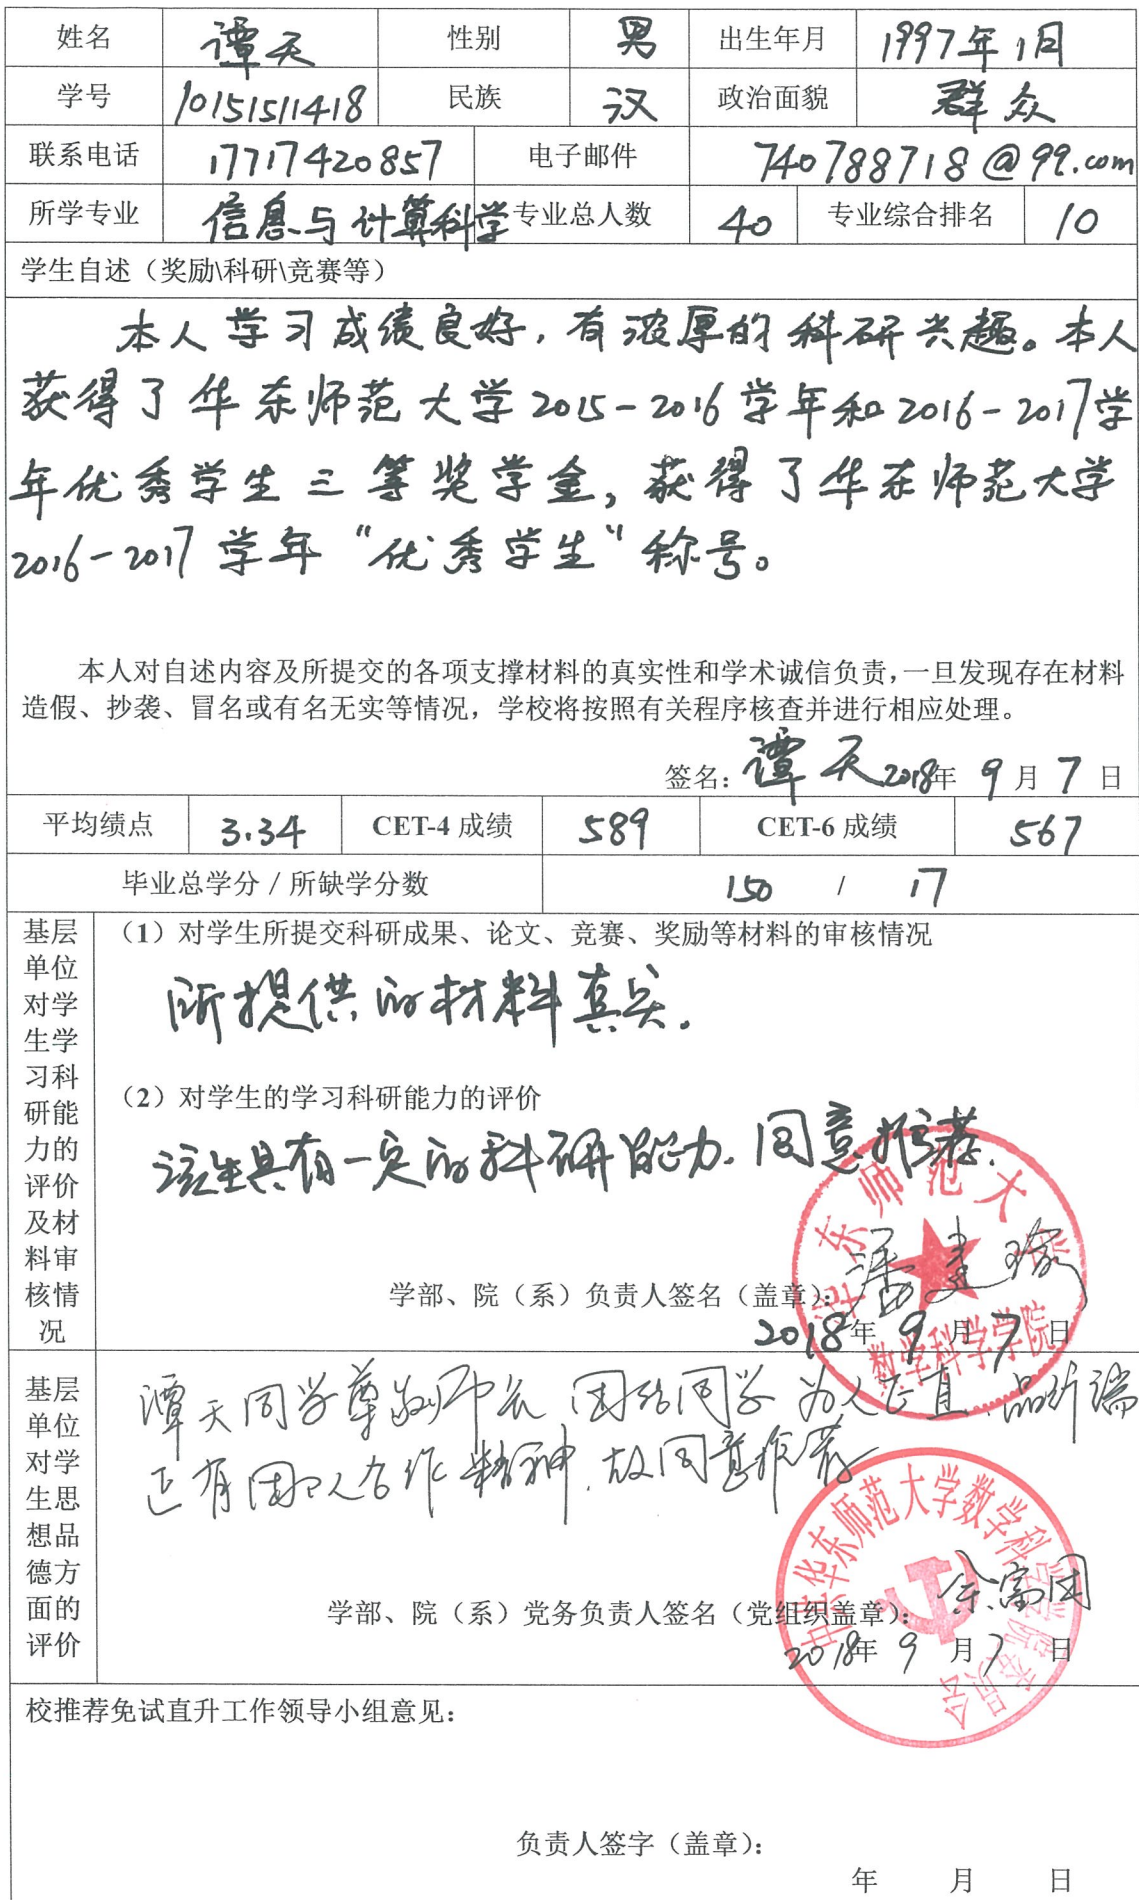 姓名 谭天 性别 男 出生年月 1997年1月
学号 10151511418 民族 汉 政治面貌 群众
联系电话 17717420857 电子邮件 740788718@qq.com
所学专业 信息与计算科学 专业总人数 40 专业综合排名 10
学生自述（奖励\科研\竞赛等）
本人学习成绩良好，有浓厚的科研兴趣。本人
获得了华东师范大学2015-2016学年和2016-2017学
年优秀学生三等奖学金，获得了华东师范大学
2016-2017学年“优秀学生”称号。
本人对自述内容及所提交的各项支撑材料的真实性和学术诚信负责，一旦发现存在材料
造假、抄袭、冒名或有名无实等情况，学校将按照有关程序核查并进行相应处理。
签名：谭天 2018年9月7日
平均绩点 3.34 CET-4 成绩 589 CET-6 成绩 567
毕业总学分 / 所缺学分数 150 / 17
基层单位对学生学习科研能力的评价及材料审核情况
（1）对学生所提交科研成果、论文、竞赛、奖励等材料的审核情况
所提供的材料真实.
（2）对学生的学习科研能力的评价
该生具有一定的科研能力.同意推荐.
华东师范大学
数学科学学院
学部、院（系）负责人签名（盖章）：潘建瑜
2018年9月7日
基层单位对学生思想品德方面的评价
谭天同学尊敬师长 团结同学 为人正直、品行端
正有团队合作精神.故同意推荐
中共华东师范大学数学科学学院委员会
学部、院（系）党务负责人签名（党组织盖章）：余富团
2018年9月7日
校推荐免试直升工作领导小组意见：
负责人签字（盖章）：
年 月 日